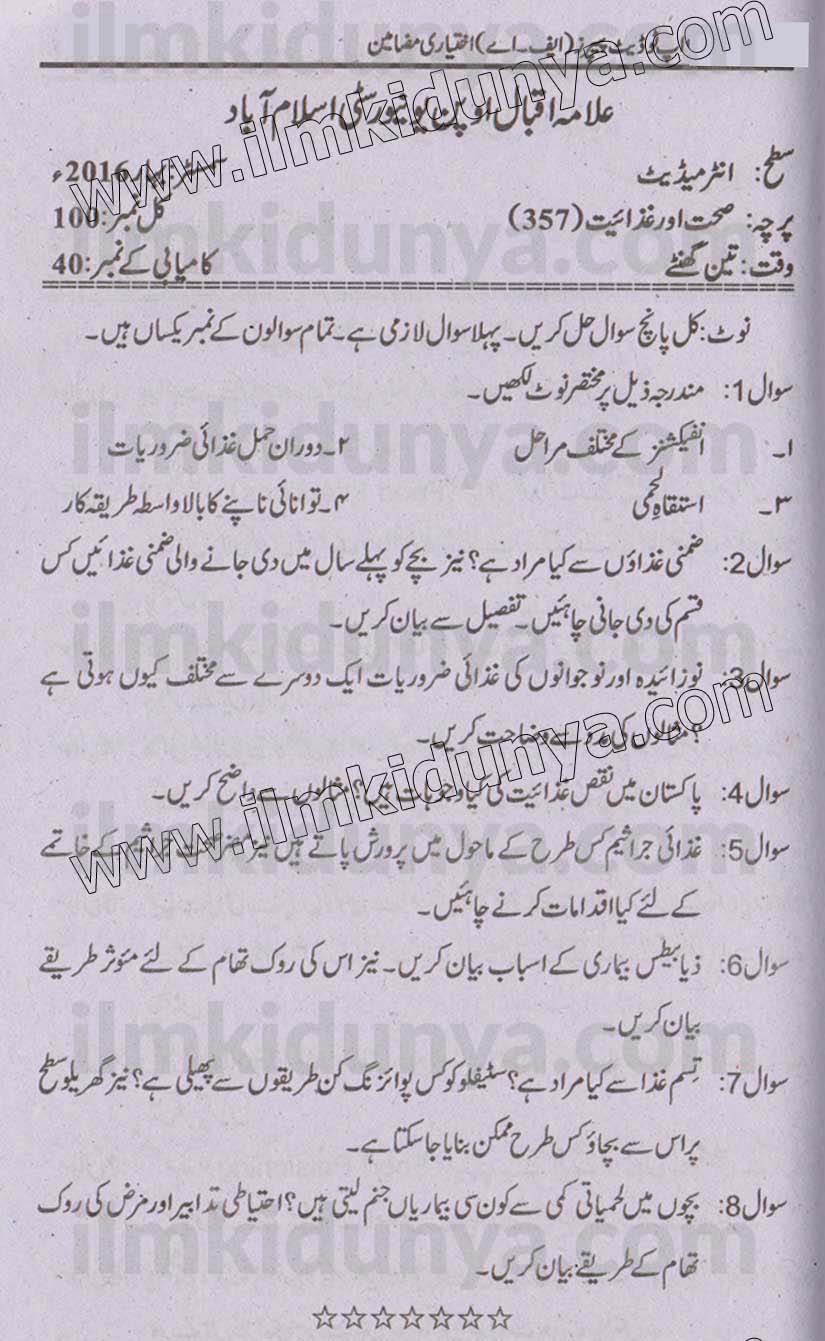 اپ ٹو ڈیٹ (ایف۔اے) اختیاری مضامین
علامہ اقبال اوپن یونیورسٹی اسلام آباد
سطح: انٹرمیڈیٹ بہار 2016ء
پرچہ: صحت اور غذائیت (357) کل نمبر: 100
وقت: تین گھنٹے کامیابی کے نمبر: 40
نوٹ: کل پانچ سوال حل کریں۔ پہلا سوال لازمی ہے۔ تمام سوالوں کے نمبر یکساں ہیں۔
سوال 1: مندرجہ ذیل پر مختصر نوٹ لکھیں۔
۱۔ انفیکشنز کے مختلف مراحل ۲۔ دوران حمل غذائی ضروریات
۳۔ استقاہِ لحمی ۴۔ توانائی ناپنے کا بالاواسطہ طریقہ کار
سوال 2: ضمنی غذاؤں سے کیا مراد ہے؟ نیز بچے کو پہلے سال میں دی جانے والی ضمنی غذائیں کس
قسم کی دی جانی چاہئیں۔ تفصیل سے بیان کریں۔
سوال 3: نوزائیدہ اور نوجوانوں کی غذائی ضروریات ایک دوسرے سے مختلف کیوں ہوتی ہے
؟ مثالوں کی رو سے وضاحت کریں۔
سوال 4: پاکستان میں نقص غذائیت کی کیا وجوہات ہیں؟ مثالوں سے واضح کریں۔
سوال 5: غذائی جراثیم کس طرح کے ماحول میں پرورش پاتے ہیں نیز جراثیم کے خاتمے
کے لئے کیا اقدامات کرنے چاہئیں۔
سوال 6: ذیابیطس بیماری کے اسباب بیان کریں۔ نیز اس کی روک تھام کے لئے مؤثر طریقے
بیان کریں۔
سوال 7: تسم غذا سے کیا مراد ہے؟ سٹیفلوکوکس پوائزنگ کن طریقوں سے پھیلی ہے؟ نیز گھریلو سطح
پر اس سے بچاؤ کس طرح ممکن بنایا جا سکتا ہے۔
سوال 8: بچوں میں لحمیاتی کمی سے کون سی بیماریاں جنم لیتی ہیں؟ احتیاطی تدابیر اور مرض کی روک
تھام کے طریقے بیان کریں۔
☆☆☆☆☆☆☆
www.ilmkidunya.com
www.ilmkidunya.com
ilmkidunya.com
ilmkidunya.com
ilmkidunya.com
ilmkidunya.com
ilmkidunya.com
ilmkidunya.com
ilmkidunya.com